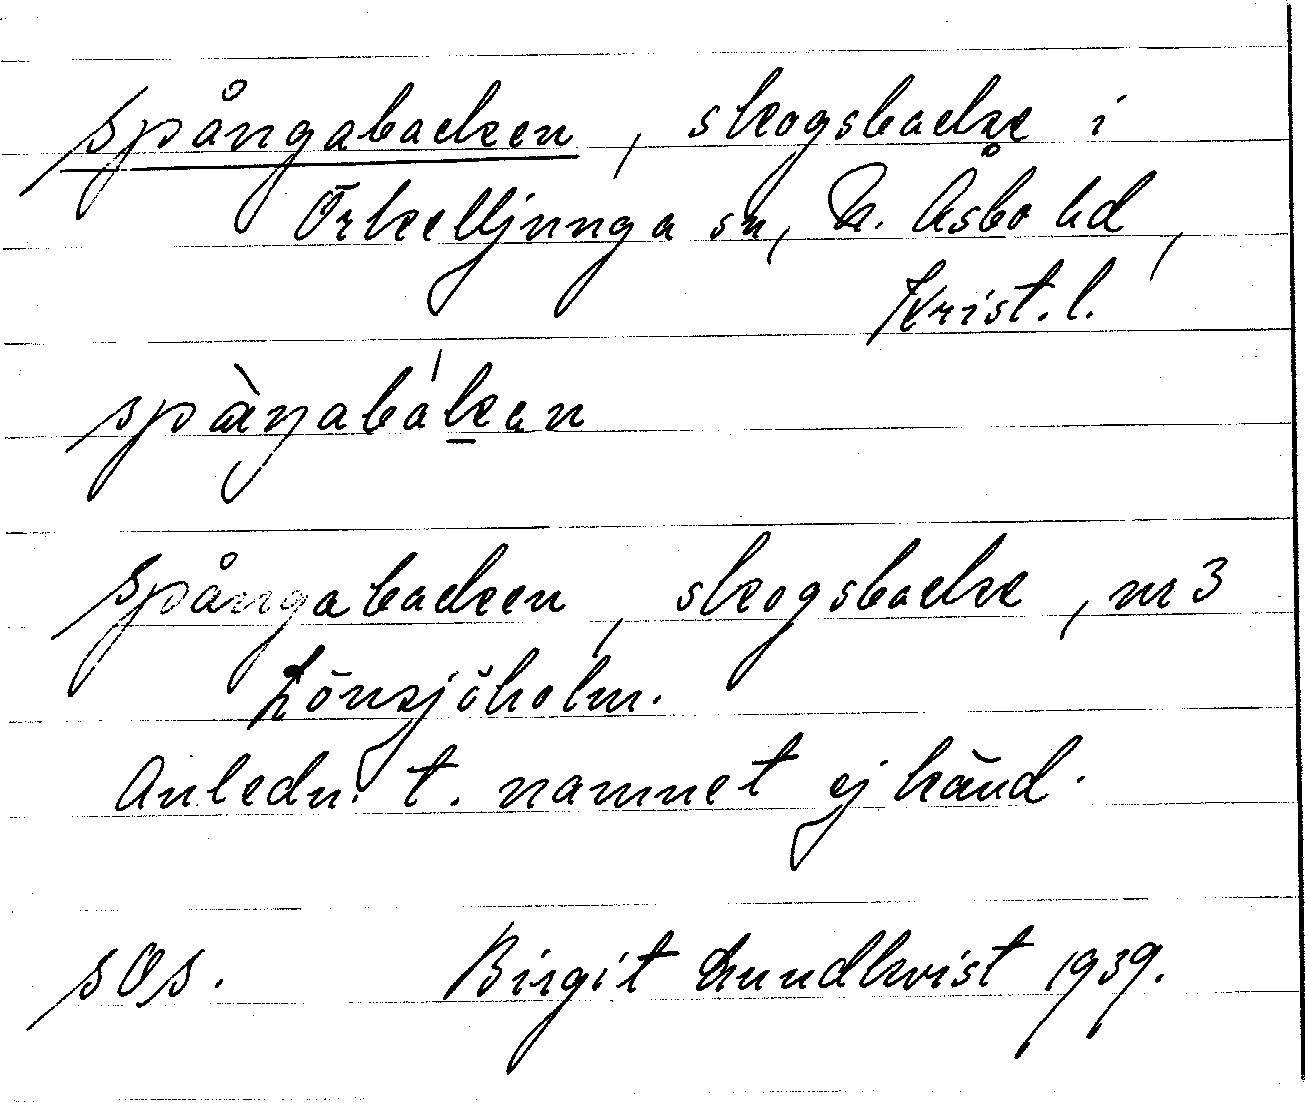 Spångabacken, skogsbacke i
Örkelljunga sn, N. Åsbo hd,
Krist. l.
spàŋabákan
Spångabacken, skogsbacke, nr 3
Lönsjöholm.
Anledn. t. namnet ej känd.
SOS. Birgit Lundkvist 1939.